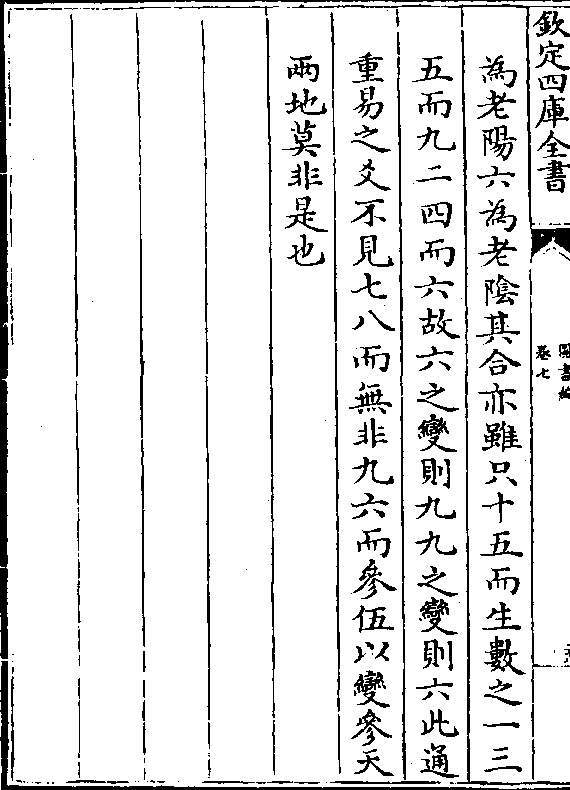 欽定四庫全書
圖書編
卷七
為老陽六為老陰其合亦雖只十五而生數之一三
五而九二四而六故六之變則九九之變則六此通
重易之爻不見七八而無非九六而參伍以變參天
兩地莫非是也